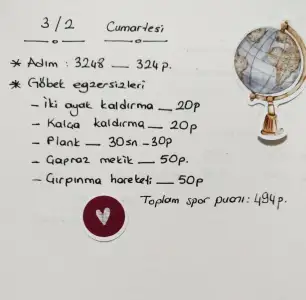 3/2 Cumartesi
* Adım : 3248 — 324 p.
* Göbet egzersizleri
- İki ayak kaldırma — 20p
- Kalça kaldırma — 20p
- Plank — 30sn - 30p
- Çapraz mekik — 50p.
- Çırpınma hareketi — 50p
Toplam spor puanı : 494p.